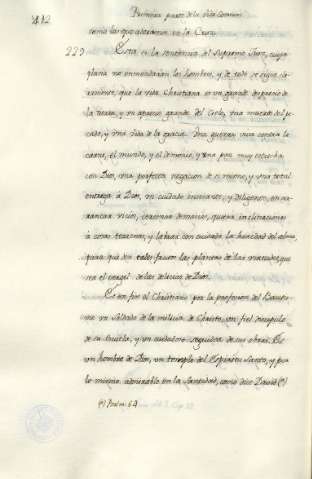 412
Primera parte de la vida Comun
como los que adoraron en la Cruz.
229 Esta es la sentencia del Supremo Juez, cuya
plana no enmendarán los hombres, y de todo se sigue cla-
ramente, que la vida Christiana es un grande desprecio de
la tierra, y un aprecio grande del Cielo, una muerte del pe-
cado, y una vida de la gracia. Una guerra viva contra la
carne, el mundo, y el demonio, y una paz muy estrecha
con Dios, una perfecta negacion de si mismo, y una total
entrega à Dios, un cuidado incesante, y diligente, en ar-
rancar vicios, inclinaciones
à cosas terrenas, y labrar con cuidado la heredad del alma,
para que en ella crezcan las plantas de las virtudes, que
sea el vergel de las delicias de Dios.
Es en fin el Christiano por la profesion del Bautis-
mo un Soldado de la milicia de Christo, un fiel discipulo
de su Escuela, y un cuidadoso seguidor de sus obras. Es
un hombre de Dios, un templo del Espiritu Santo, y por
lo mismo admirable en la Santidad, como dice David (*)
(*) Psalm. 64